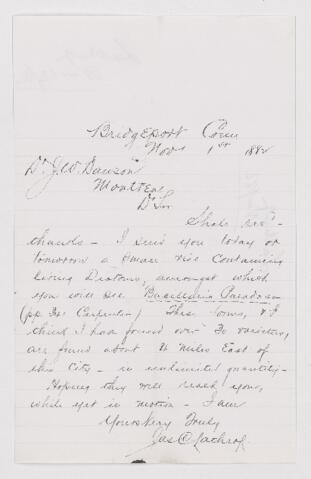 Bridgeport Conn
Nov 1st 1882
Dr J. W. Dawson
Montreal
Dr Sir
thanks - I send you today or
tomorrow a small containing
living Diatoms, amongst which
you will see Bacillaria Paradoxa
(pp Carpenter) This form, & I
think I had found over 30 varieties,
are found about 2 miles East of
this City - in unlimited quantity -
Hoping they will reach you,
while yet in motion - I am
Yours Very Truly
Jas C Lathrop